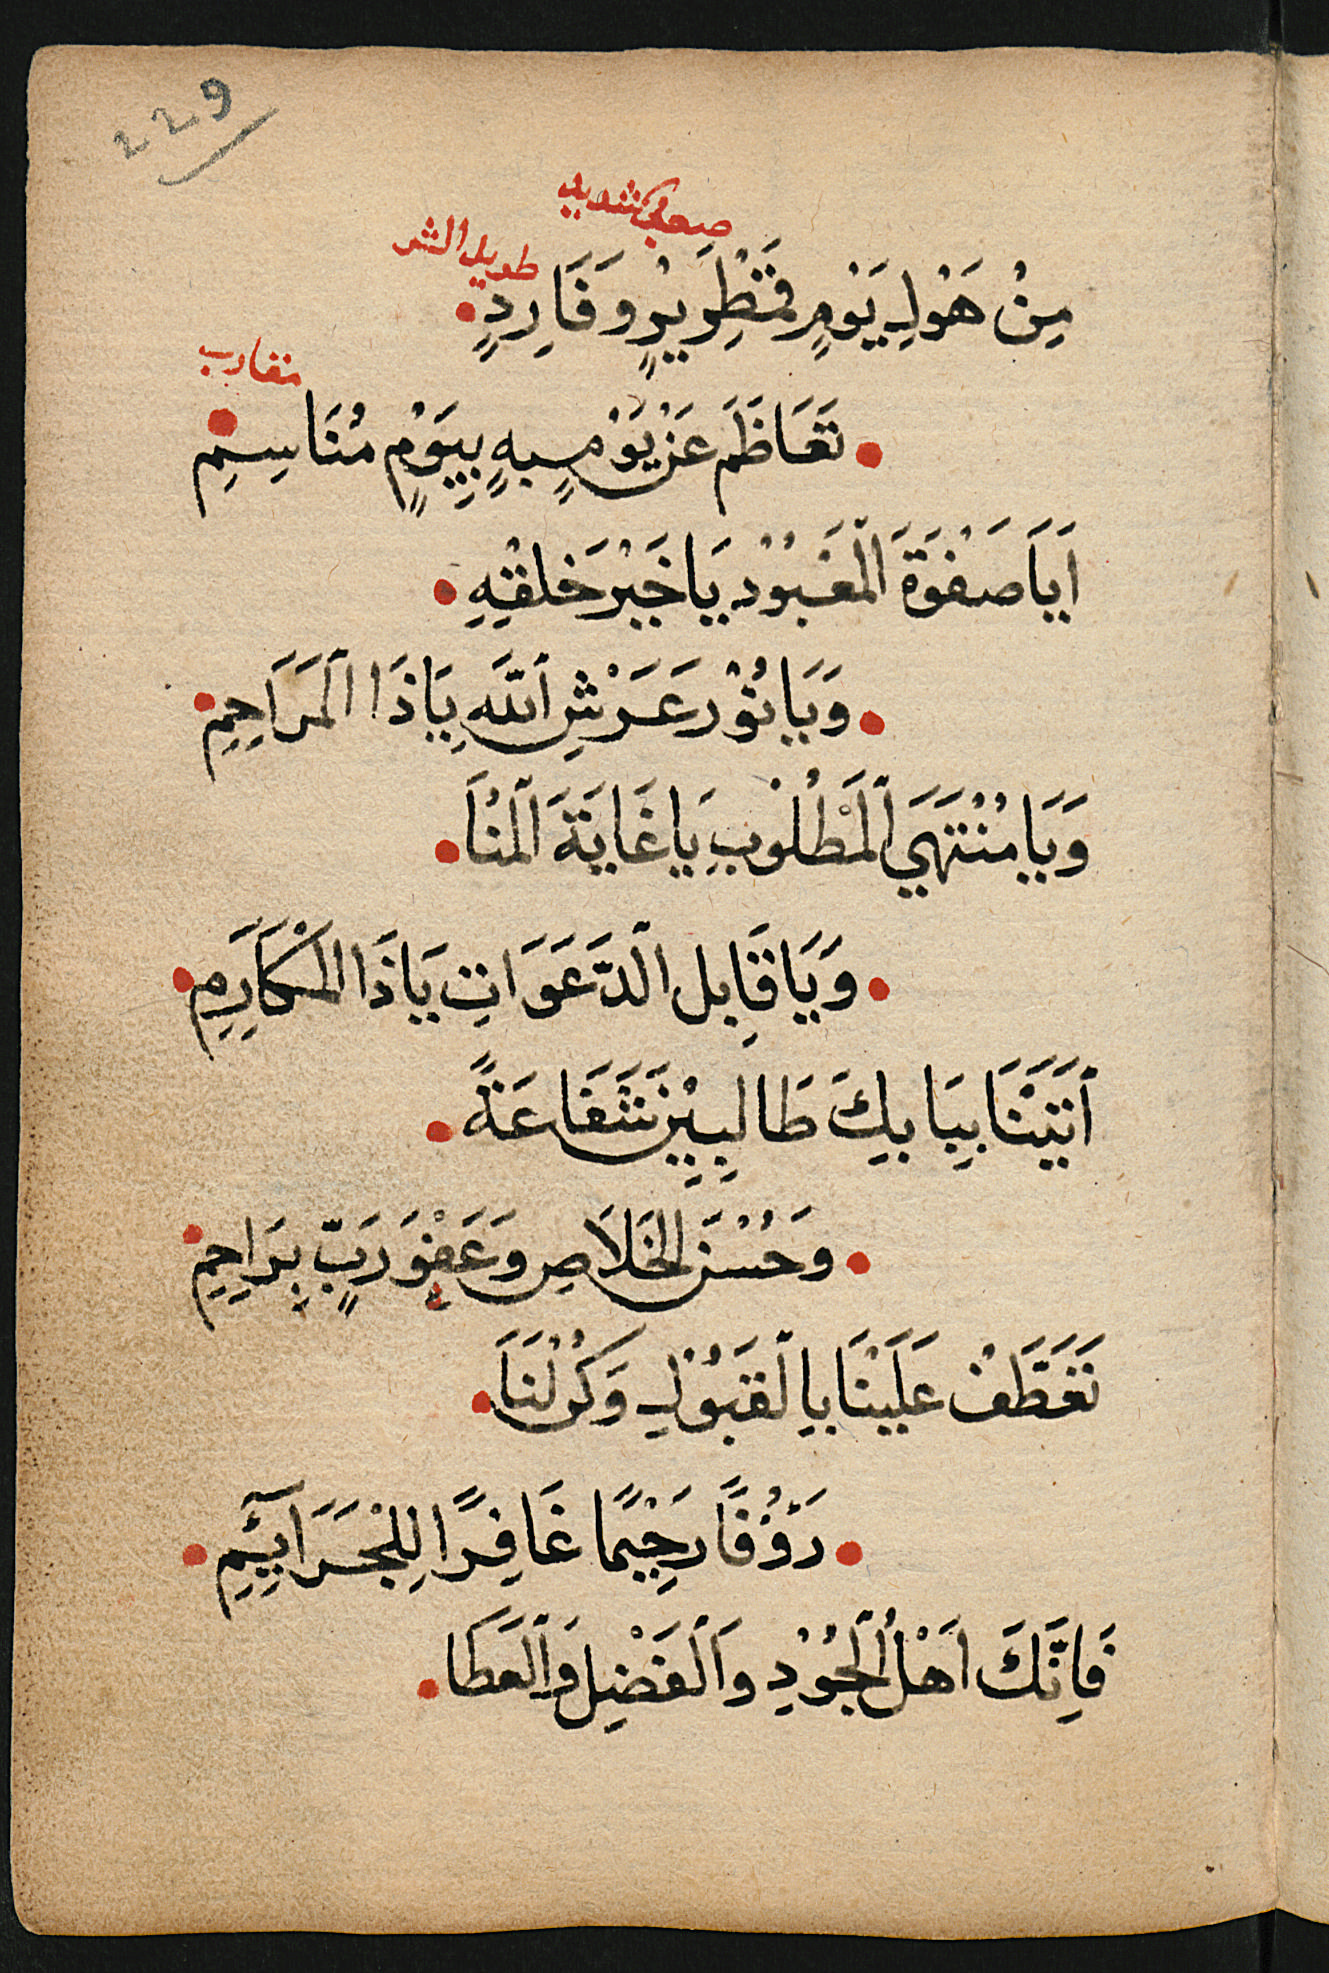 229
صعب شديد
طويل الشر
مِنْ هَوْلِ يَوْمٍ قَمْطَرِيْرٍ وَفَارِدٍ
متقارب
تَعَاظَمَ عَنْ يَوْمٍ بِهٍ بِيَوْمٍ مُنَاسِمِ
اَيَا صَفْوَةَ الْمَعْبُوْدِ يَا خَيْرَ خَلْقِهِ
وَيَا نُوْرَ عَرْشِ اللَّهِ يَا ذَا الْمَرَاحِمِ
وَيَا مُنْتَهَي الْمَطْلُوْبِ يَا غَايَةَ الْمُنَا
وَيَا قَابِلَ الدَّعَوَاتِ يَا ذَا الْمَكَارِمِ
اَتَيْنَا بِبَابِكَ طَالِبِيْنَ شَفَاعَةً
وَحُسْنَ الْخَلَاصِ وَعَفْوَ رَبٍّ بِرَاحِمِ
تَعَطَّفْ عَلَيْنَا بِالْقَبُوْلِ وَكُنْ لَنَا
رَؤُفًا رَحِيْمًا غَافِرًا لِلْجَرَآئِمِ
فَاِنَّكَ اَهْلُ الْجُوْدِ وَالْفَضْلِ وَالْعَطَا